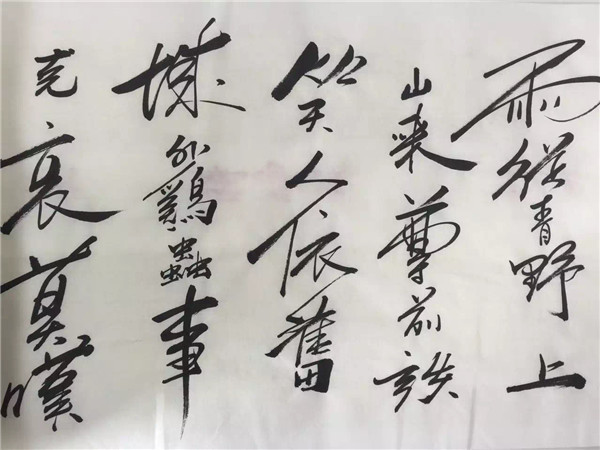 雨從青野上
山來尊前談
笑人依舊
域外鷄蟲事
克哀莫嘆